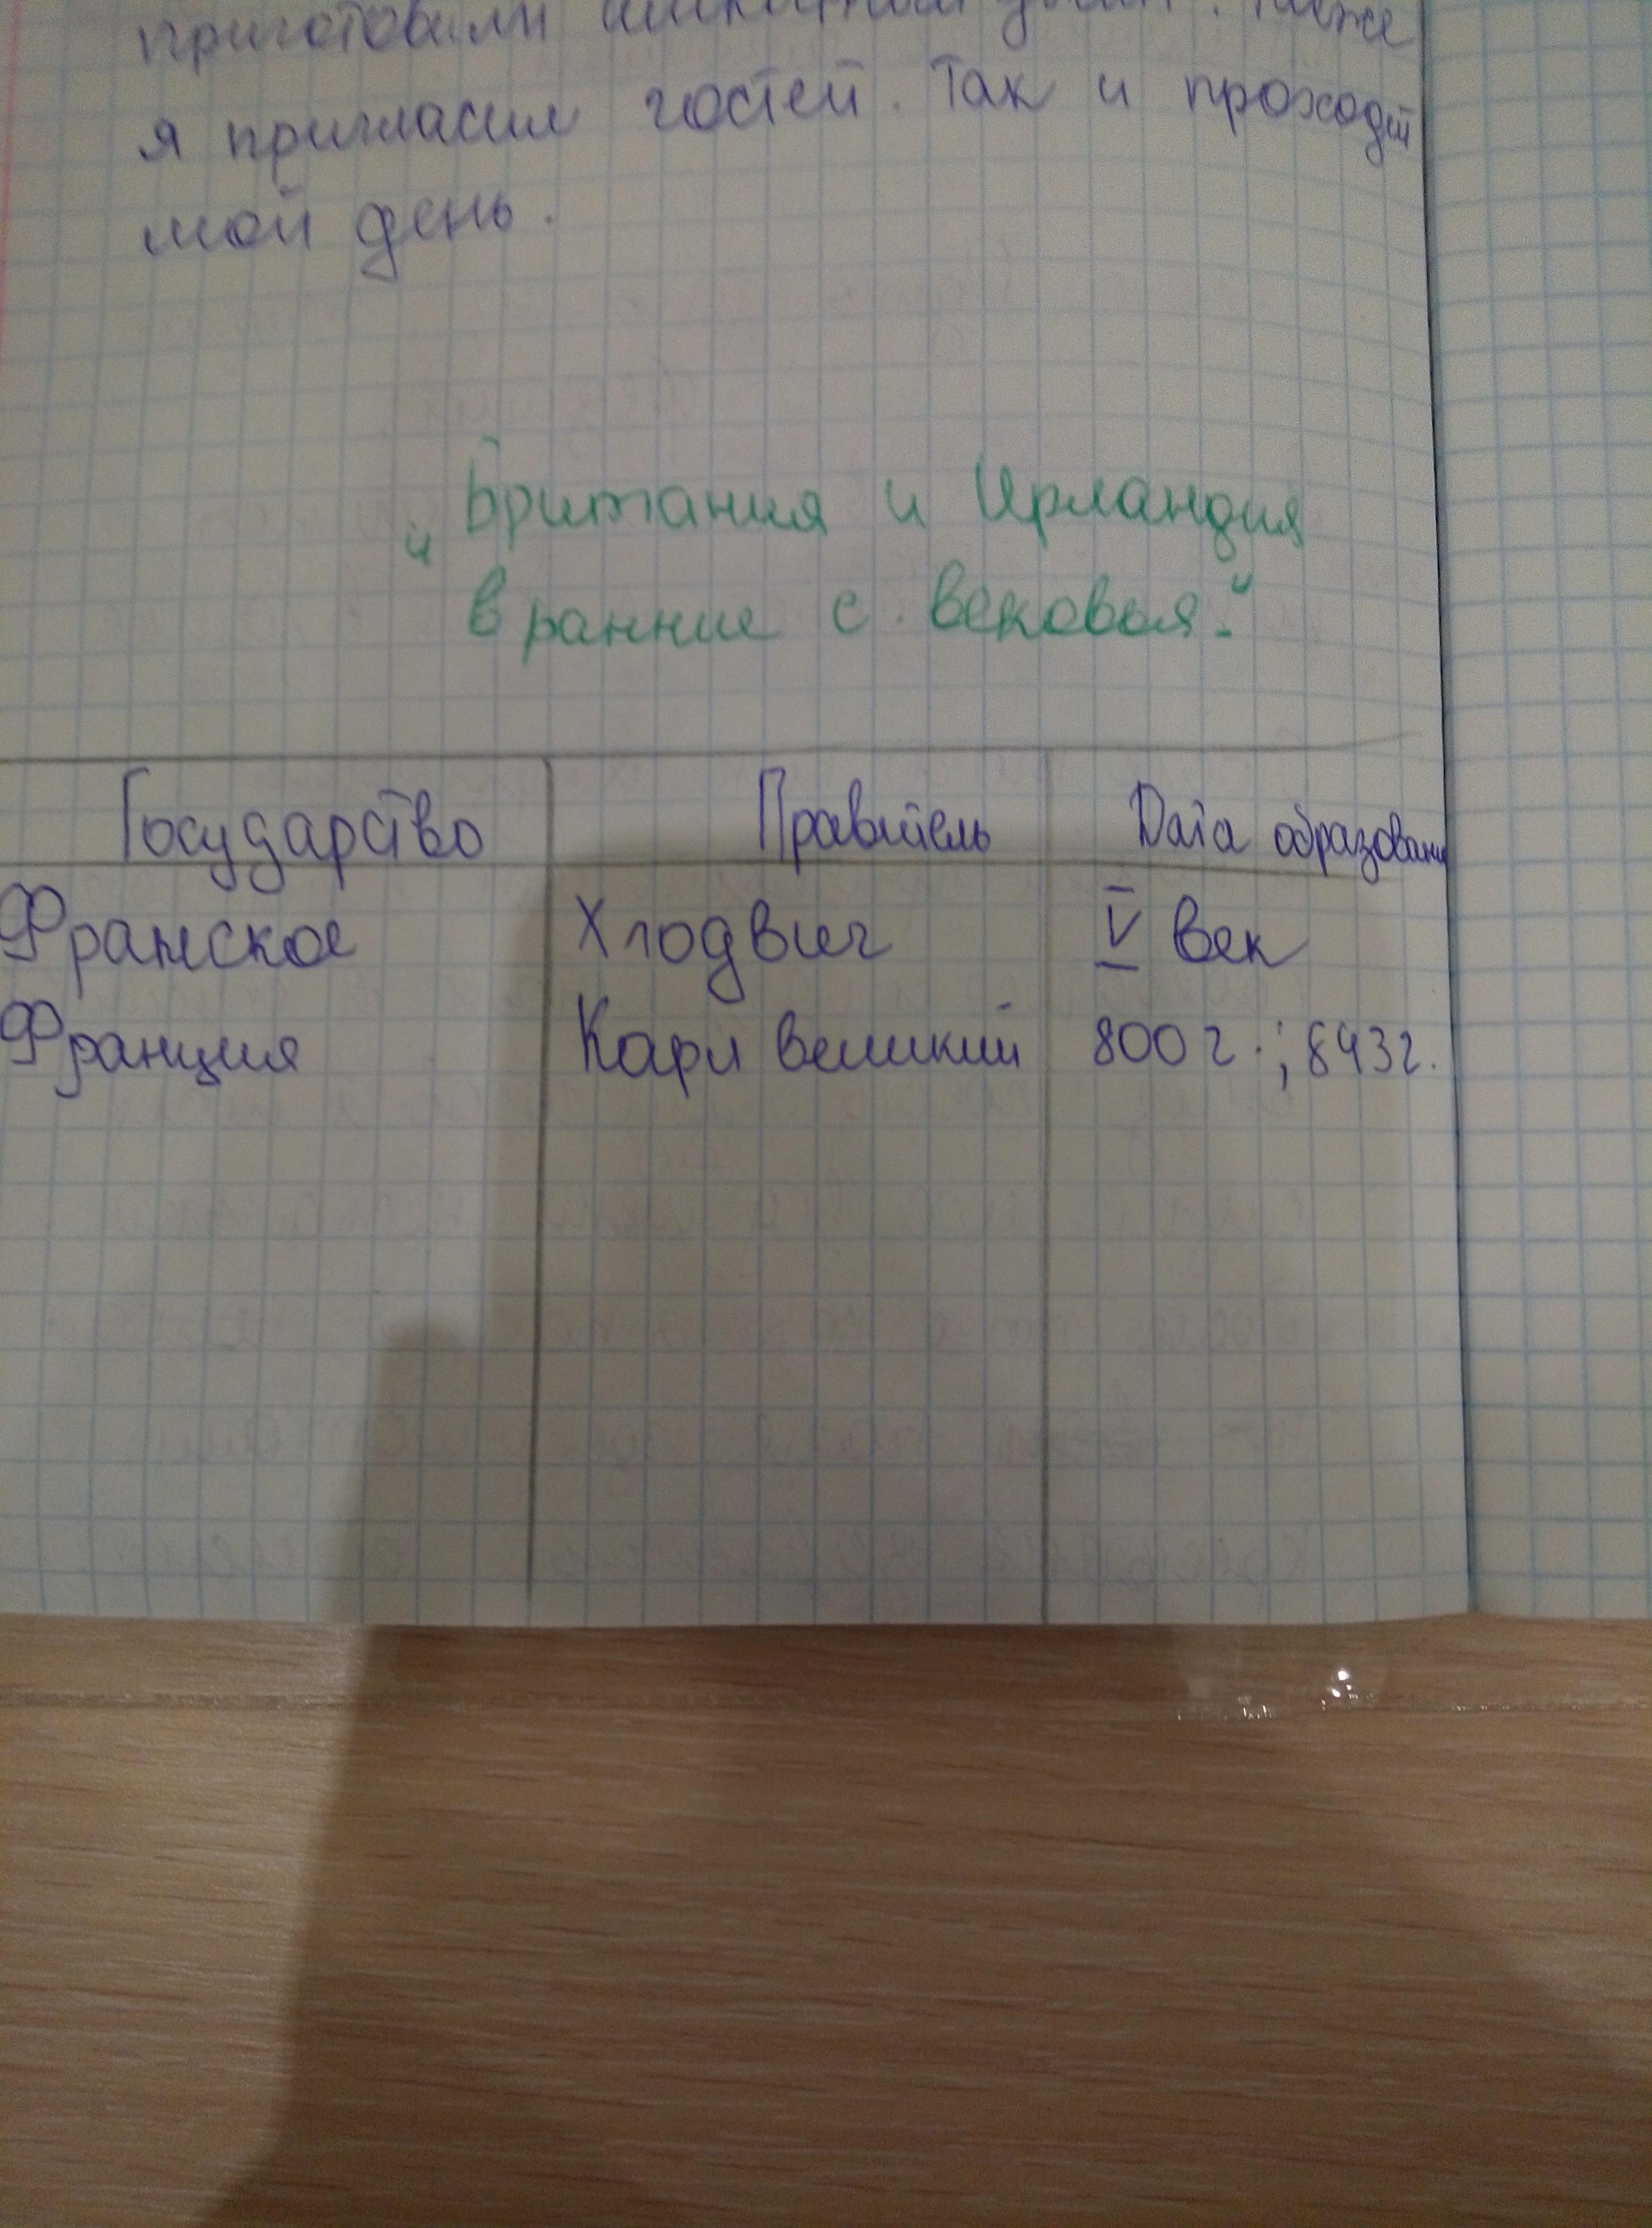 приготовили шикарный ужин. Также
я пригласил гостей. Так и проходит
мой день.
"Британия и Ирландия
в ранние с. вековья."
Государство Правитель Дата образования
Франское Хлодвиг V век
Франция Карл великий 800 г.; 843 г.